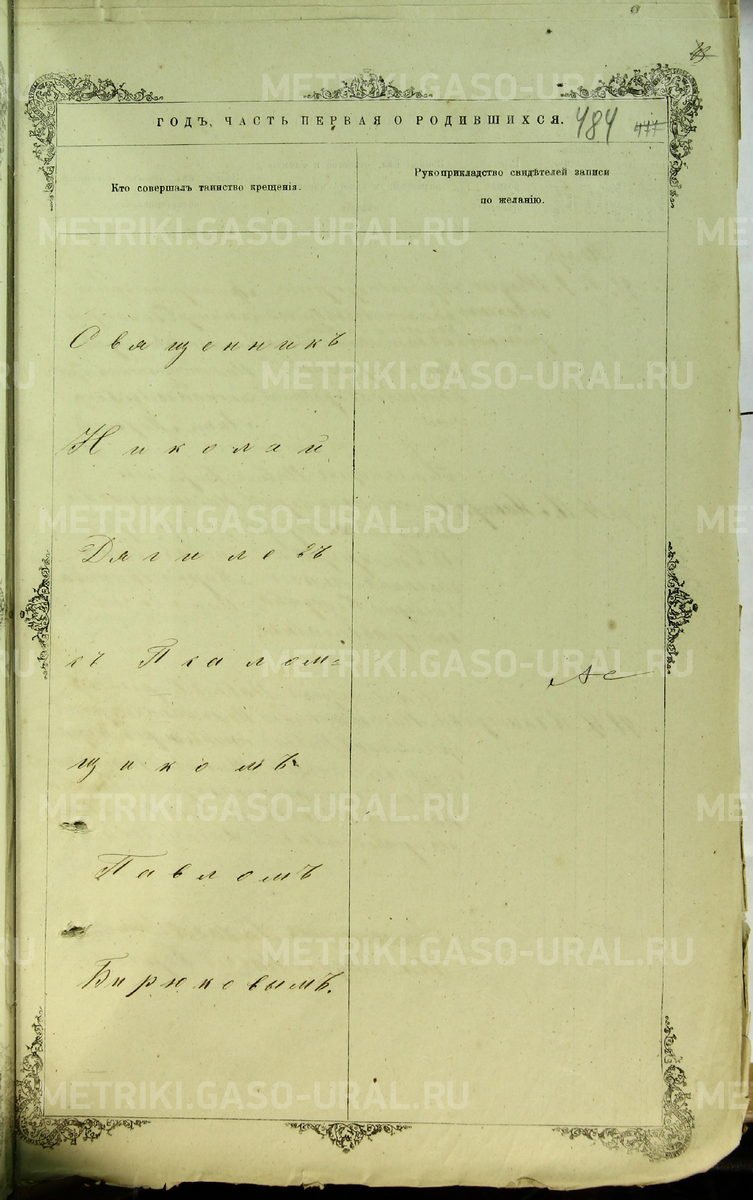 ГОДЪ, ЧАСТЬ ПЕРВАЯ О РОДИВШИХСЯ. 484
Кто совершалъ таинство крещенія.
Рукоприкладство свидѣтелей записи
по желанію.
Священникъ
Николай
Дягилевъ
съ Псалом=
щикомъ
Павломъ
Бирюковымъ.
METRIKI.GASO-URAL.RU